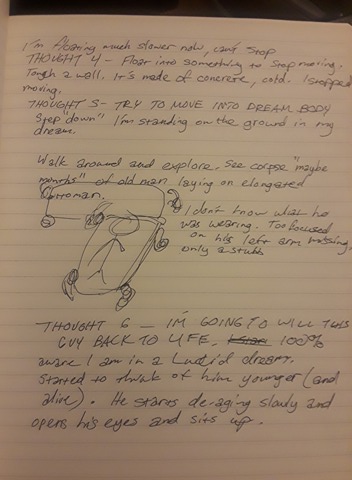 I'm floating much slower now, can't stop
THOUGHT 4 - Float into something to stop moving.
Touch a wall. It's made of concrete, cold. I stopped
moving.
THOUGHT 5 - TRY TO MOVE INTO DREAM BODY
Step "down" I'm standing on the ground in my
dream.
Walk around and explore. See corpse "maybe
months" of old man laying on elongated
ottoman.
I don't know what he
was wearing. Too focused
on his left arm missing,
only a stub.
THOUGHT 6 - I'M GOING TO WILL THIS
GUY BACK TO LIFE. 100%
aware I am in a Lucid dream.
Started to think of him younger (and
alive). He starts de-aging slowly and
opens his eyes and sits up.